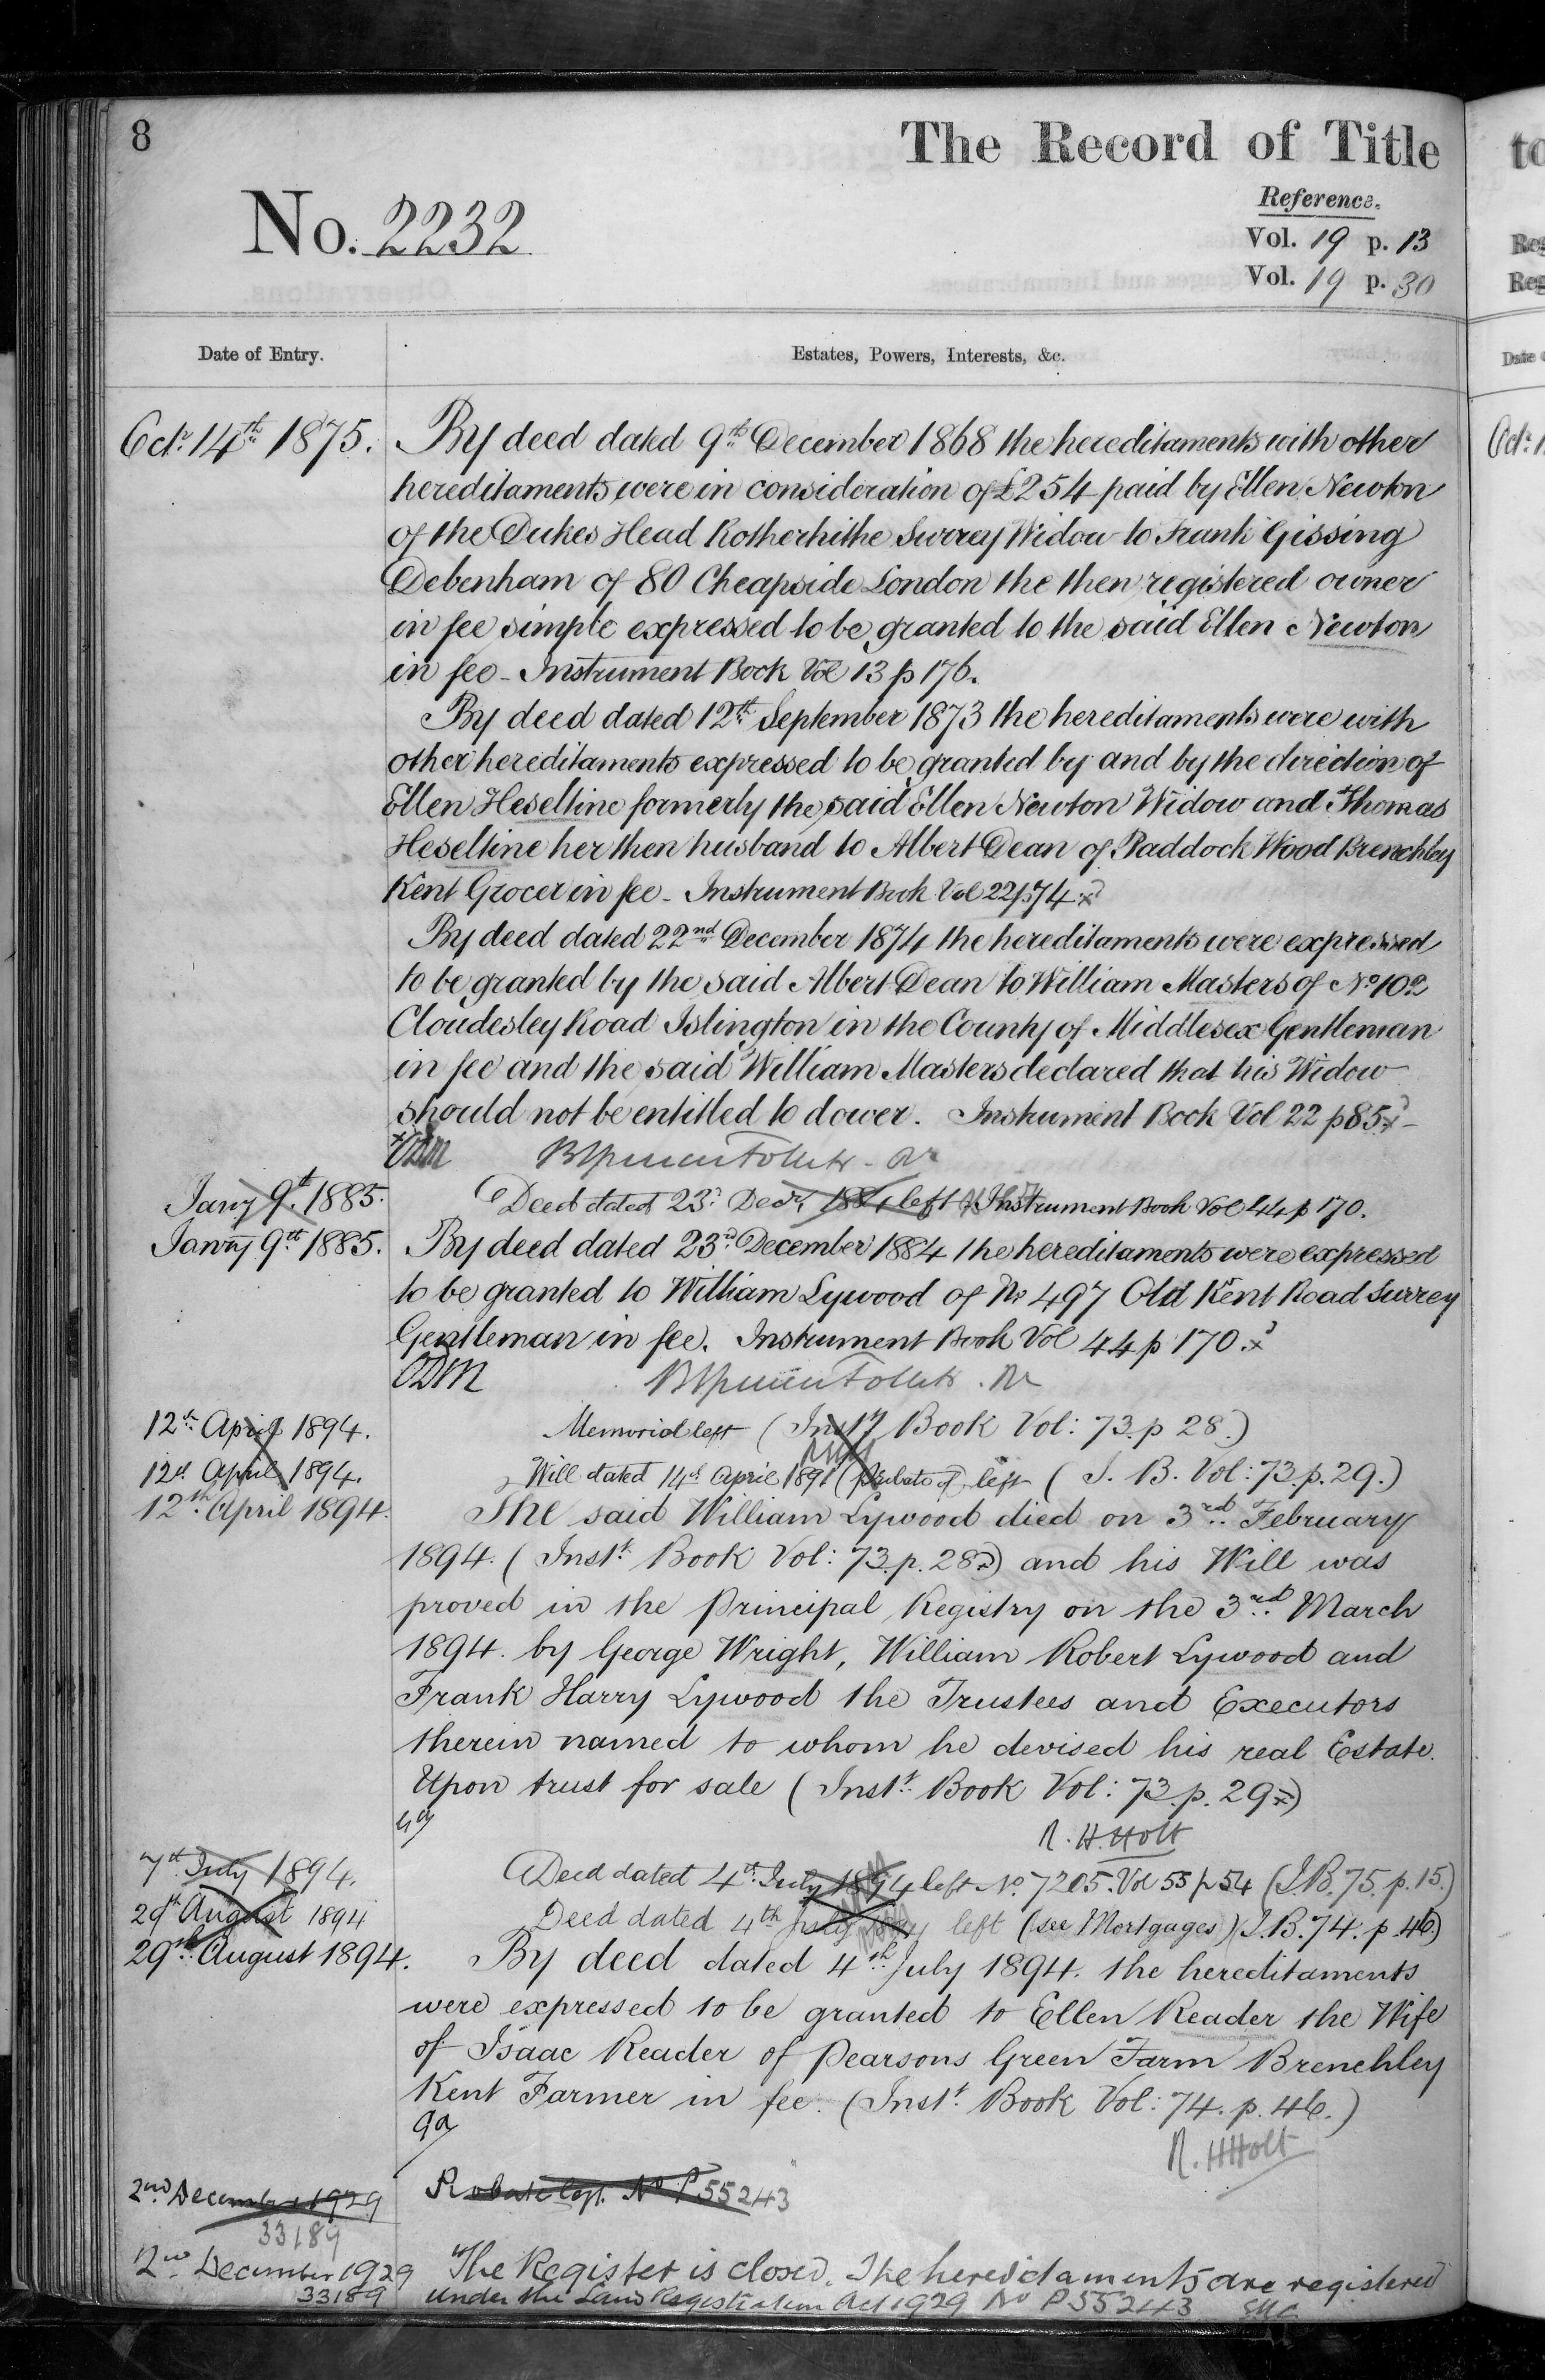 8
The Record of Title
No. 2232
Reference.
Vol. 19 p. 13
Vol. 19 p. 30
Date of Entry.
Estates, Powers, Interests, &c.
Octr. 14th 1875. By deed dated 9th December 1868 the hereditaments with other
hereditaments were in consideration of £254 paid by Ellen Newton
of the Dukes Head Rotherhithe Surrey Widow to Frank Gissing
Debenham of 80 Cheapside London the then registered owner
in fee simple expressed to be granted to the said Ellen Newton
in fee - Instrument Book Vol 13 p 176.
By deed dated 12th September 1873 the hereditaments were with
other hereditaments expressed to be granted by and by the direction of
Ellen Heseltine formerly the said Ellen Newton Widow and Thomas
Heseltine her then husband to Albert Dean of Paddock Wood Brenchley
Kent Grocer in fee - Instrument Book Vol 22 p 74
By deed dated 22nd December 1874 the hereditaments were expressed
to be granted by the said Albert Dean to William Masters of No 102
Cloudesley Road Islington in the County of Middlesex Gentleman
in fee and the said William Masters declared that his Widow
should not be entitled to dower. Instrument Book Vol 22 p 85
Jany 9th. 1885. Deed dated 23d. Decr. 1884 left Instrument Book Vol 44 p 170.
Janry 9th 1885. By deed dated 23rd December 1884 the hereditaments were expressed
to be granted to William Lywood of No 497 Old Kent Road Surrey
Gentleman in fee. Instrument Book Vol 44 p 170.
ODM
12th April 1894. Memorial left (Inst Book Vol: 73. p 28.)
12th April 1894. Will dated 14th April 1891 (Probate of) left (I. B. Vol: 73. p. 29.)
12th April 1894. The said William Lywood died on 3rd February
1894. (Inst. Book Vol: 73. p. 28) and his Will was
proved in the Principal Registry on the 3rd March
1894. by George Wright, William Robert Lywood and
Frank Harry Lywood the Trustees and Executors
therein named to whom he devised his real Estate.
Upon trust for sale (Inst. Book Vol: 73. p. 29)
R. H. Holt
7th July 1894. Deed dated 4th July 1894 left No. 7205. Vol 55 p 54 (I.B. 75. p. 15.)
29th August 1894 Deed dated 4th July left (see Mortgages) (I.B. 74. p. 46)
29th August 1894. By deed dated 4th July 1894. the hereditaments
were expressed to be granted to Ellen Reader the Wife
of Isaac Reader of Pearsons Green Farm Brenchley
Kent Farmer in fee. (Inst. Book Vol: 74. p. 46.)
R. H Holt
2nd December 1929 Probate left. No P55243
33189
2nd December 1929 The Register is closed. The hereditaments are registered
33189 under the Land Registration Act 1929 No P 55243
to
Reg
Reg
Date
Oct. 1